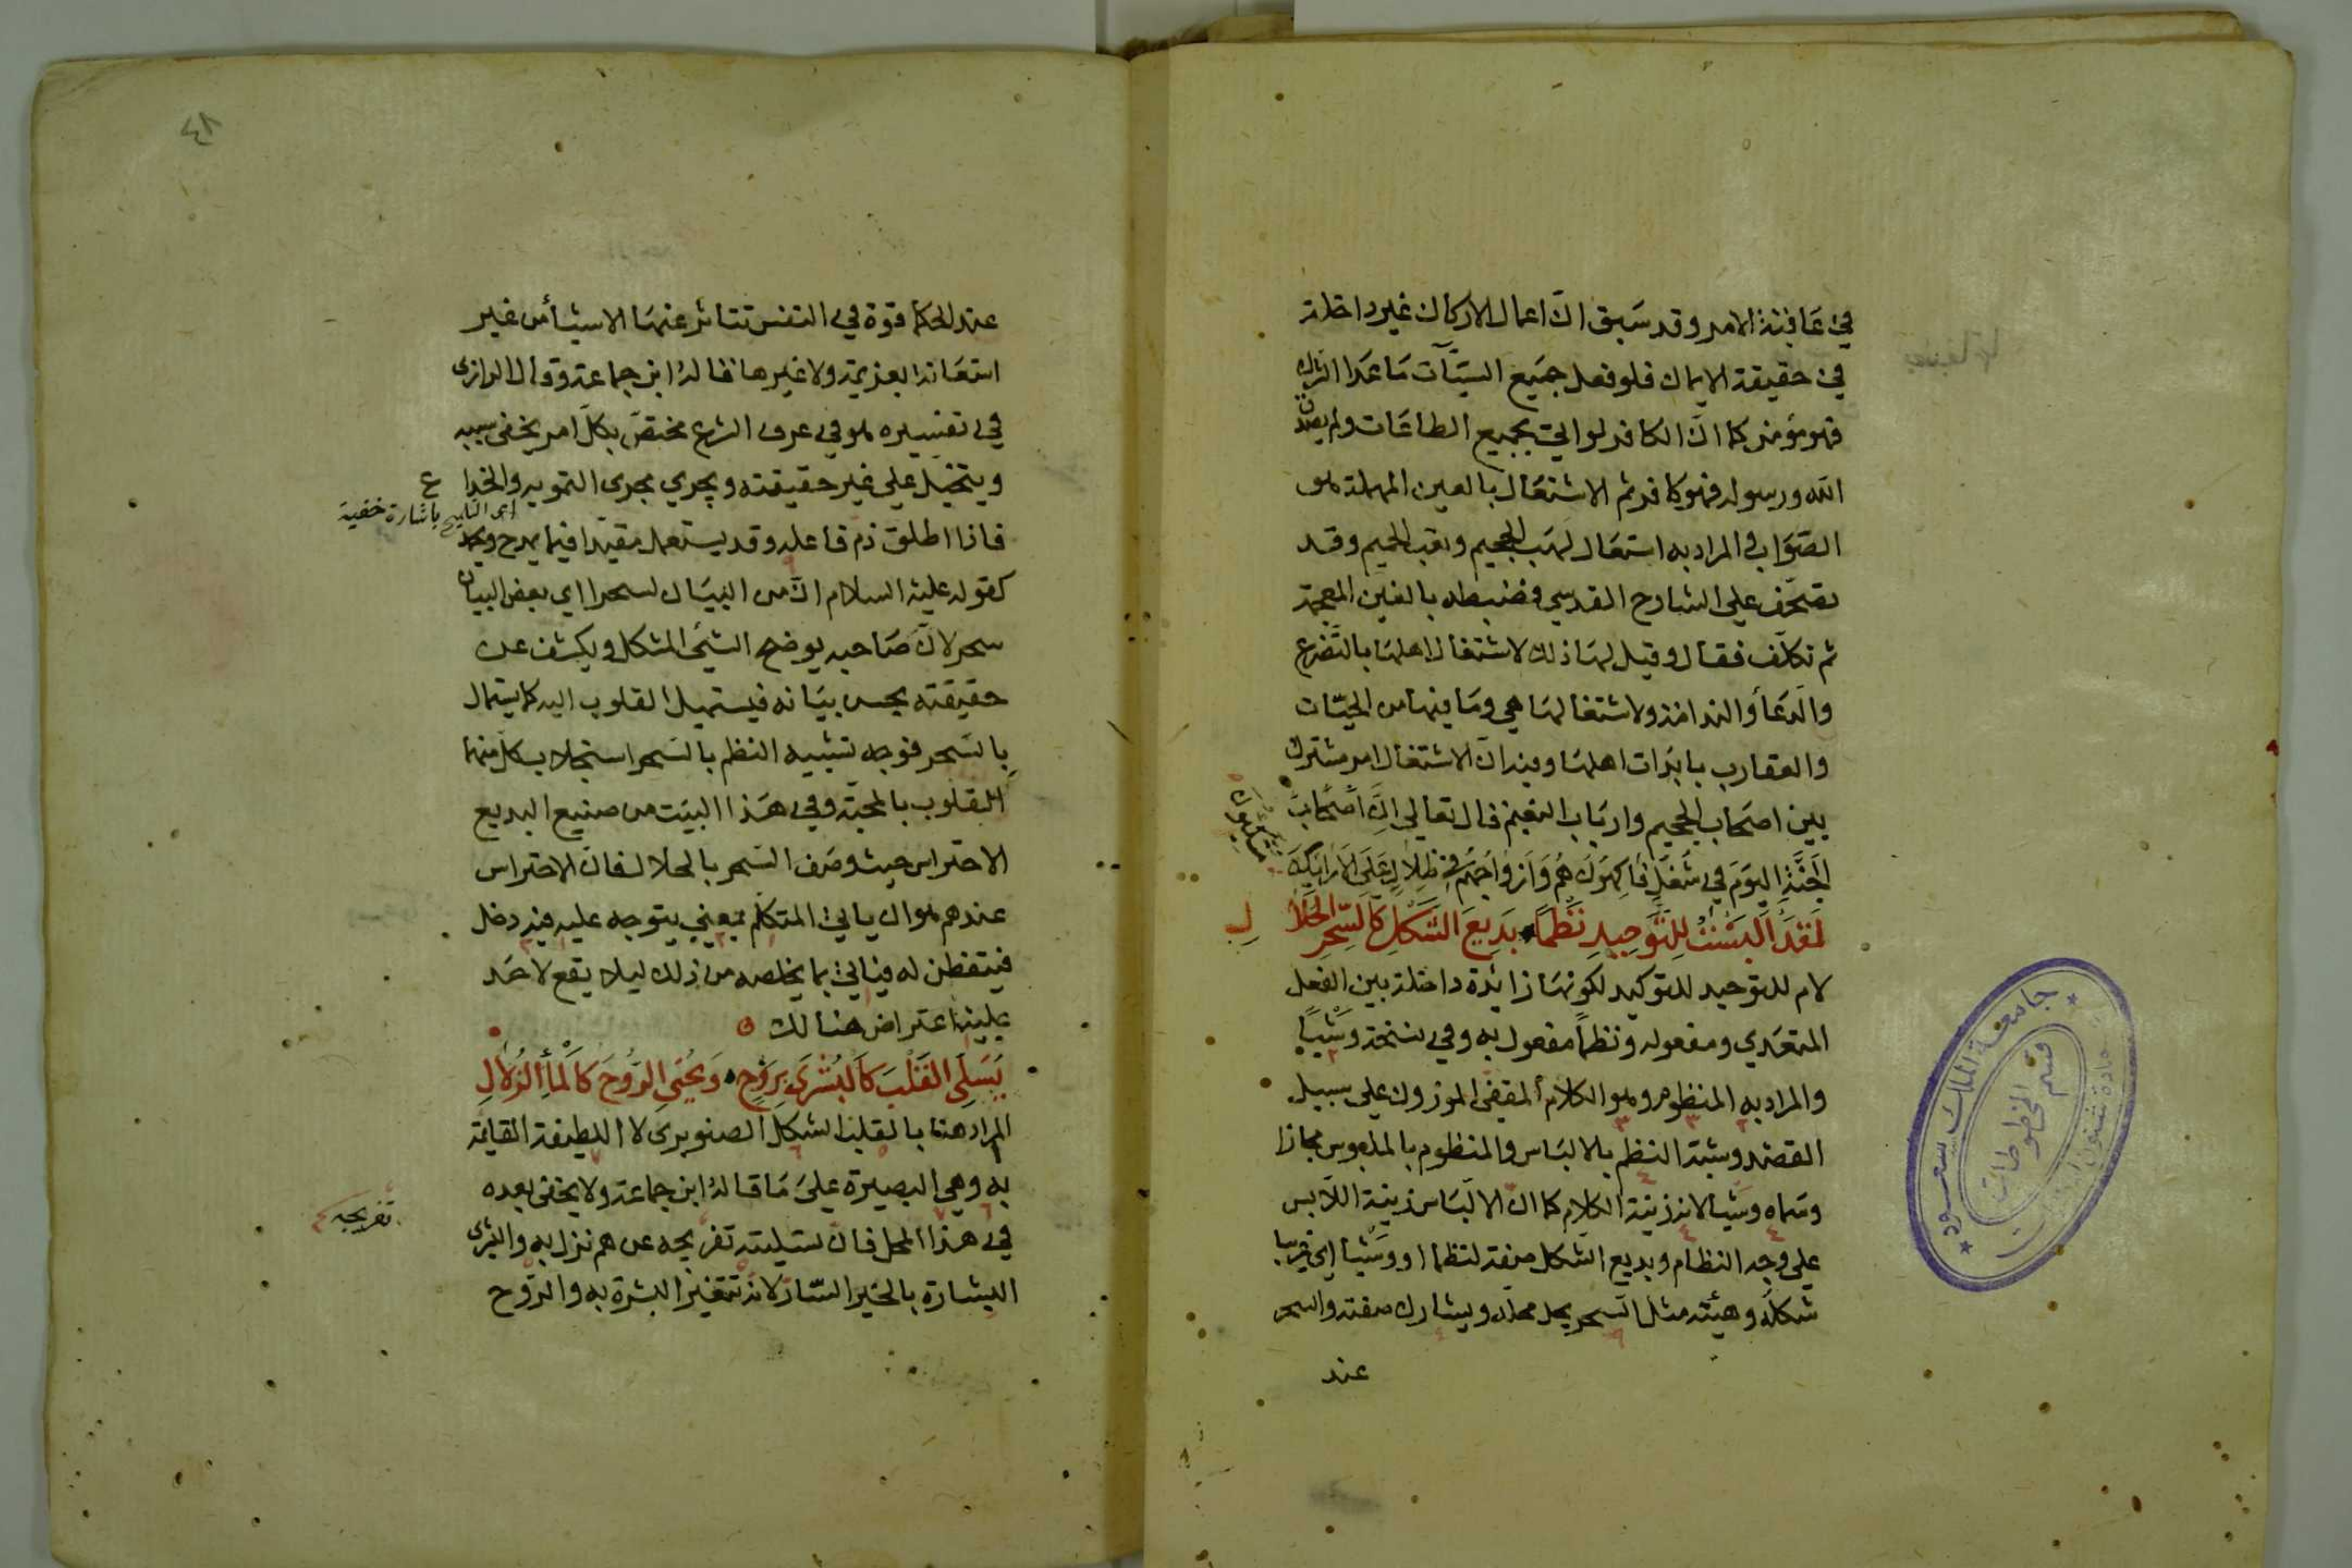 في عاقبة الامر وقد سبق ان اعمال الاركان غير داخلة
في حقيقة الايمان فلو فعل جميع السيّآت ما عدا الشرك
فهو مؤمن كما ان الكافر لو اتى بجميع الطاعات ولم يصدق
الله ورسوله فهو كافر ثم الاشتعال بالعين المهملة هو
الصواب والمراد به اشتعال لهب الجحيم وتعب الحميم وقد
تصحّف على الشارح القدسي فضبطه بالغين المعجمة
ثم تكلّف فقال وقيل لها ذلك لاشتغال اهلها بالتضرع
والدعأ والندامة ولاشتغالها هي وما فيها من الحيّات
والعقارب بابدات اهلها وفيه ان الاشتغال امر مشترك
بين اصحاب الجحيم وارباب النعيم قال تعالى اِنَّ اَصْحَابَ
الجَنَّةِ اليَوْمَ فِي شُغُلٍ فَاكِهُونَ هُمْ وَاَزْوَاجُهُمْ فِي ظِلَالٍ عَلَى الاَرَائِكِ
متكئون
لَقَدْ اَلْبَسْتُ لِلتَّوْحِيدِ نَظْمًا بَدِيعَ الشَّكْلِ كَالسِّحْرِ الحَلَالِ
لام للتوحيد للتوكيد لكونها زائدة داخلة بين الفعل
المتعدي ومفعوله ونظماً مفعول به وفي نسخة وَشْيًا
والمراد به المنظوم وهو الكلام المقفى الموزون على سبيل
القصد وشبّه النظم بالالباس والمنظوم بالملبوس مجازا
وسماه وشيا لانه زينة الكلام كما ان الالباس زينة اللابس
على وجه النظام وبديع الشكل صفة لنظما او وشيا اى غريبا
شكله وهيئته مثل السحر يحل محله ويشارك صفته والسحر
عند
جامعة الملك سعود
قسم المخطوطات
عمادة شئون المكتبات
٤٨
عند الحكما قوة في النفس تتاثر عنها الاشيأ من غير
استعانة بعزيمة ولا غيرها قاله ابن جماعة وقال الرازى
في تفسيره هو في عرف الشرع مختصّ بكل امر يخفى سببه
ويتخيل على غير حقيقته ويجري مجرى التمويه والخداع
اى التلبيح باشارة خفية
فاذا اطلق ذم فاعله وقد يستعمل مقيدا فيما يمدح ويحمد
كقوله عليه السلام انّ من البيان لسحرا اي بعض البيان
سحر لانّ صاحبه يوضح الشئ المشكل ويكشف عن
حقيقته بحسن بيانه فيستميل القلوب اليه كما يستمال
بالسحر فوجه تشبيه النظم بالسحر استجلاب كل منهما
للقلوب بالمحبّة وفي هذا البيت من صنيع البديع
الاحتراس حيث وصف السحر بالحلال فان الاحتراس
عندهم هو ان ياتي المتكلم بمعنى يتوجه عليه فيه دخل
فيتفطن له فياتي بما يخلصه من ذلك ليلا يقع لاحد
عليه اعتراض هنالك
يُسَلِّى القَلْبَ كَالبُشْرَى بِرَوْحٍ وَيُحْيِى الرُّوحَ كَالمَأِ الزُّلَالِ
المراد هنا بالقلب الشكل الصنوبرى لا اللطيفة القايمة
به وهي البصيرة على ما قاله ابن جماعة ولا يخفى بعده
في هذا المحل فان تسليته تفريجه عن هم نزل به والبشرى
تفريجه
البشارة بالخبر السّار لانه تتغير البشرة به والرّوح